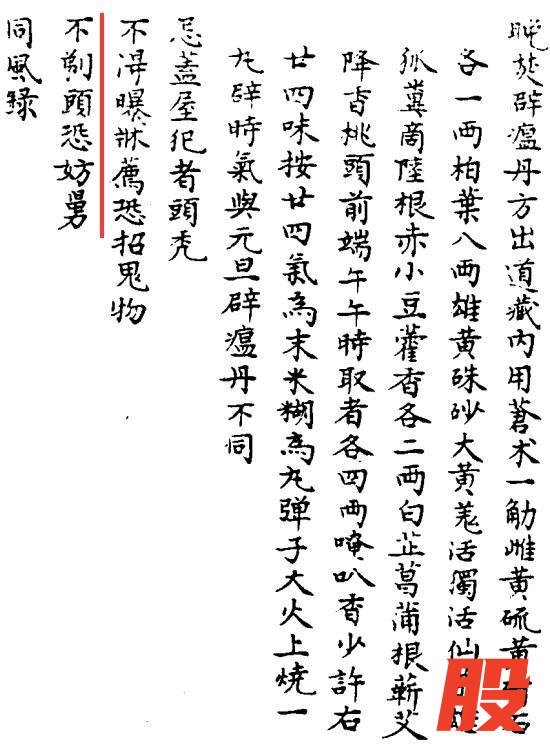 晚焚辟瘟丹方出道藏內用蒼术一觔雌黄硫黄硝石
各一两柏葉八两雄黄硃砂大黄羗活獨活仙
狐糞商陸根赤小豆藿香各二两白芷菖蒲根蘄艾
降香桃頭前端午午時取者各四两唵叭香少許右
廿四味按廿四氣為末米糊為丸弹子大火上燒一
丸辟時氣與元旦辟瘟丹不同
忌蓋屋犯者頭秃
不淂曝牀薦恐招鬼物
不剃頭恐妨舅
同風録
股